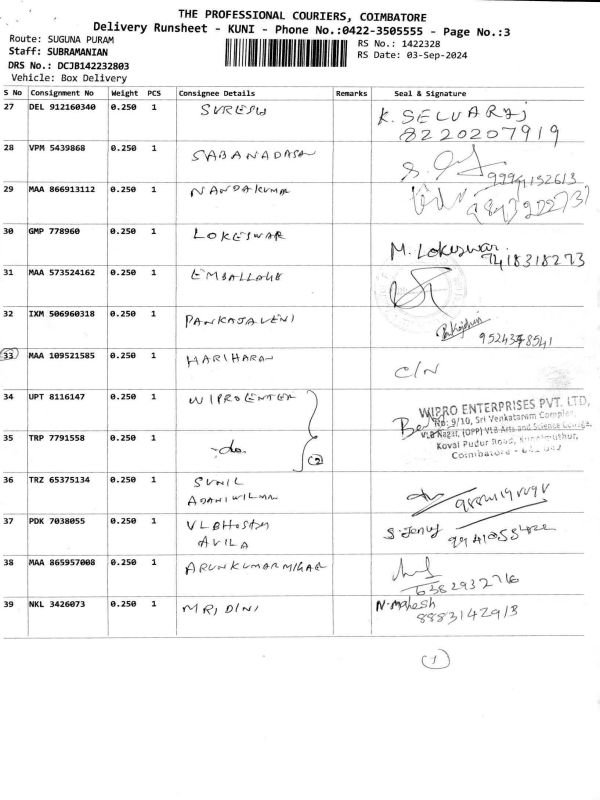 THE PROFESSIONAL COURIERS, COIMBATORE
Delivery Runsheet - KUNI - Phone No.:0422-3505555 - Page No.:3
Route: SUGUNA PURAM
RS No.: 1422328
Staff: SUBRAMANIAN
RS Date: 03-Sep-2024
DRS No.: DCJB142232803
Vehicle: Box Delivery
S No Consignment No Weight PCS Consignee Details Remarks Seal & Signature
27 DEL 912160340 0.250 1 SURESH K. SELVARAJ
8220207919
28 VPM 5439868 0.250 1 SABANADASH
29 MAA 866913112 0.250 1 NANDAKUMAR
30 GMP 778960 0.250 1 LOKESWAR M. Lokeswar
7418318273
31 MAA 573524162 0.250 1 EMBALLAGE
32 IXM 506960318 0.250 1 PANKAJAVENI
33 MAA 109521585 0.250 1 HARIHARAN C/N
34 UPT 8116147 0.250 1 WIPRO ENTER
WIPRO ENTERPRISES PVT. LTD,
No: 9/10, Sri Venkataram Complex,
VLB Nagar, (OPP) VLB Arts and Science College,
Kovai Pudur Road, Kuniamuthur,
Coimbatore -
35 TRP 7791558 0.250 1 -do. (2)
36 TRZ 65375134 0.250 1 SUNIL
ADANI WILMAR
37 PDK 7038055 0.250 1 VLB HOSTEL
AVILA
38 MAA 865957008 0.250 1 ARUNKUMAR MIGAR
6382932716
39 NKL 3426073 0.250 1 MRIDINI N. Mahesh
8883142913
(1)